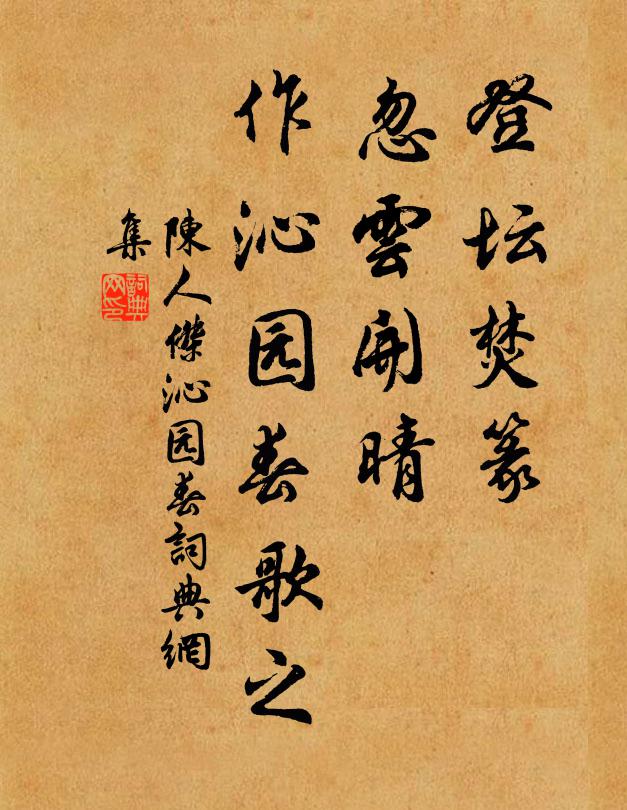 登坛焚篆
忽雲開晴
作沁园春歌之
陳人傑沁园春詞典網
集
詞典网印